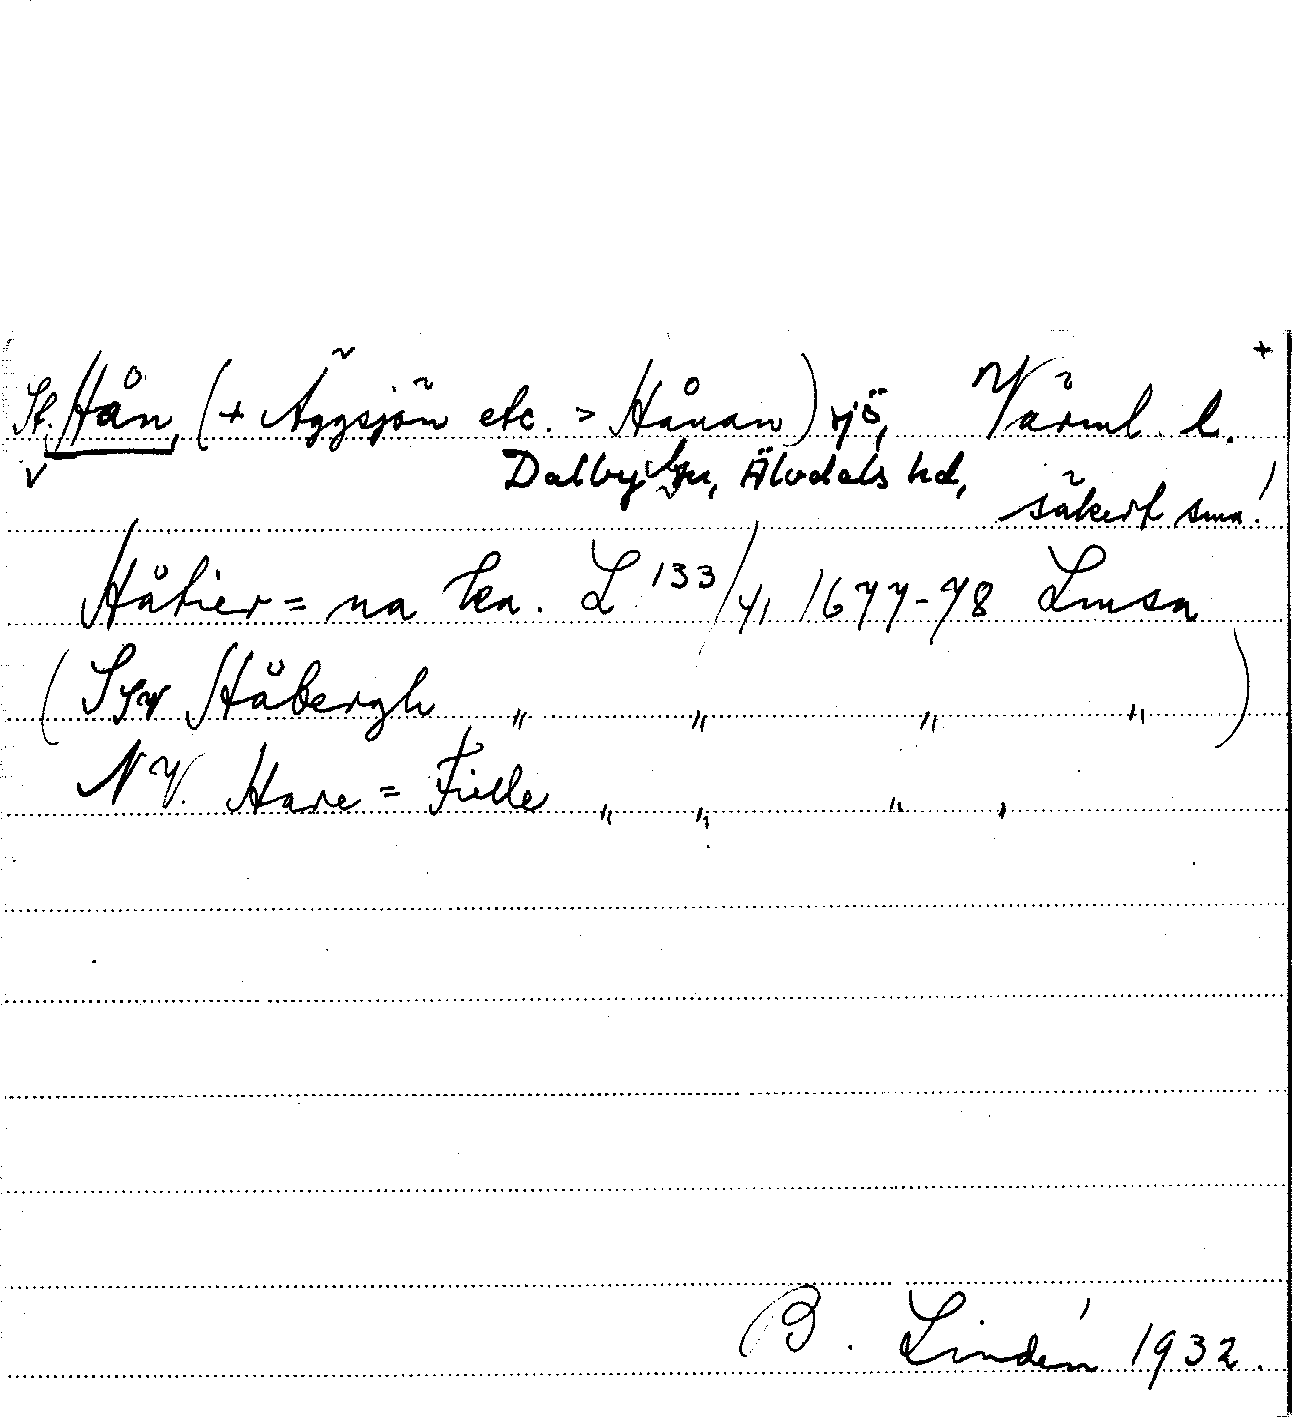 +
St. Hån, (+ Äggsjön etc. > Hånan) sjö, Värml. l.
Dalby sn, Älvdals hd,
säkert sma!
Håtier = na L 133/41 1677-78 Lmsa
( Syv Håbergh " " " " )
NV. Hare = Fielle " " " "
B. Lindén 1932.